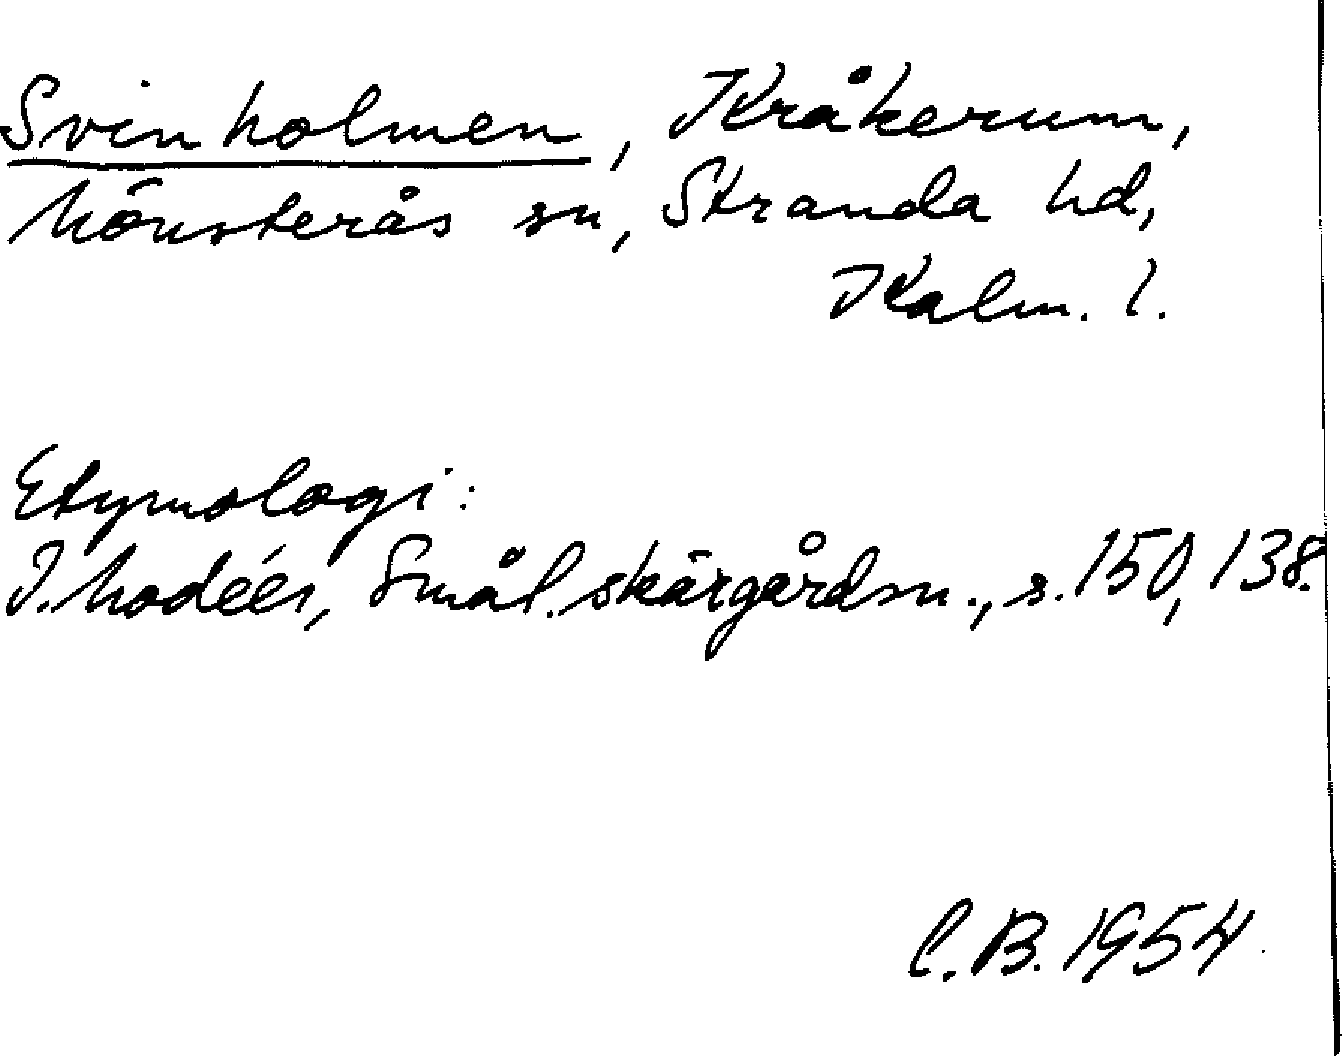 Svinholmen, Kråkerum,
Mönsterås sn, Stranda hd,
Kalm. l.
Etymologi:
I. Modéer, Smål. skärgårdsn., s. 150, 138.
C. B. 1954